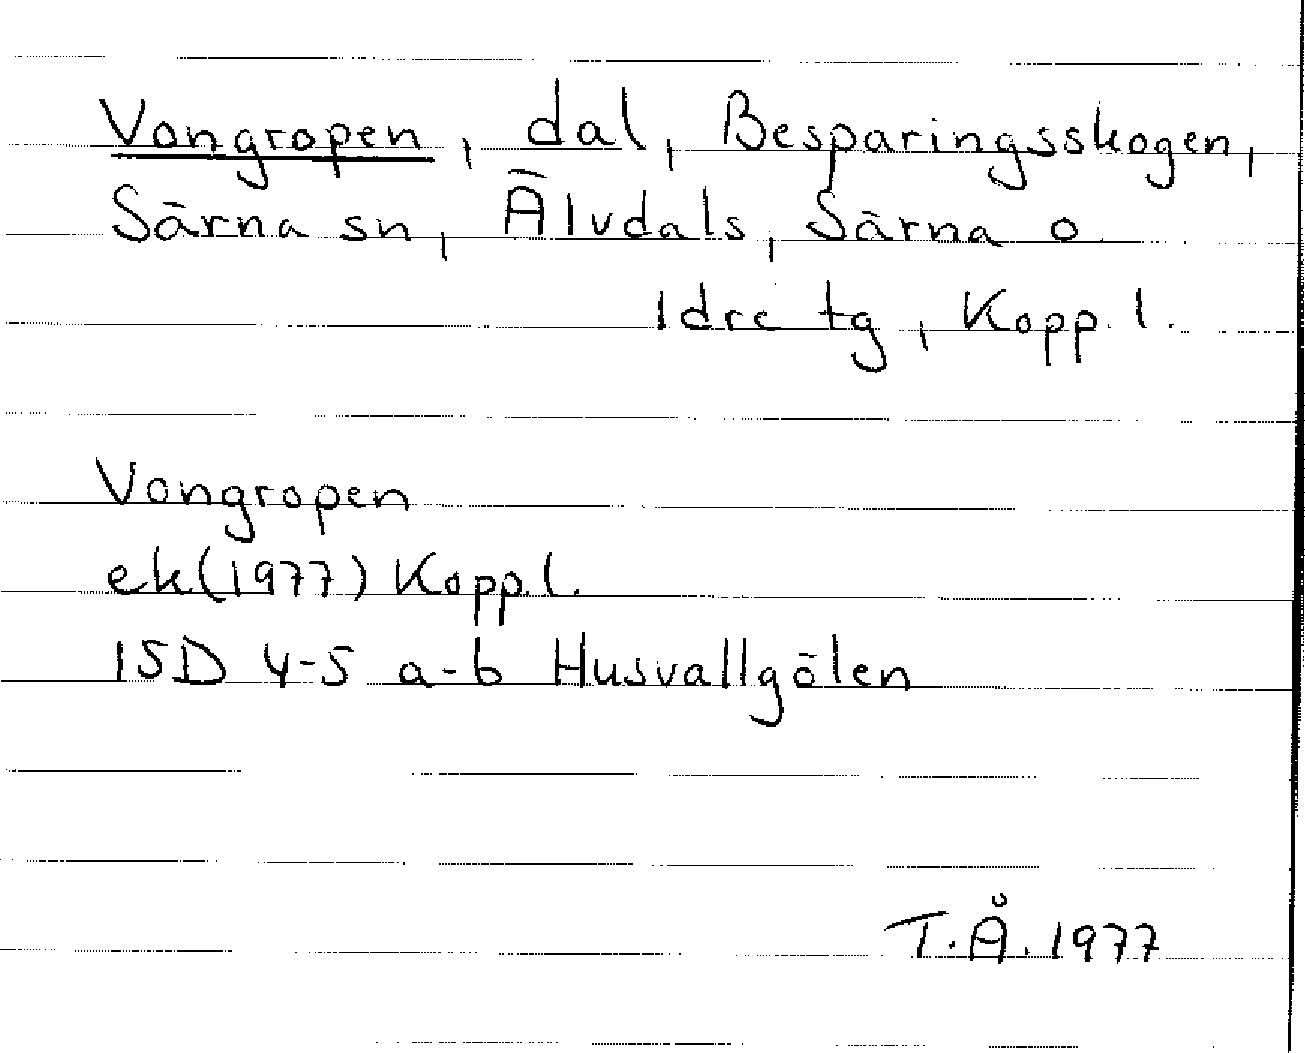 Vongropen, dal, Besparingsskogen,
Särna sn, Älvdals, Särna o
Idre tg, Kopp. l.
Vongropen
ek (1977) Kopp. l.
15D 4-5 a-b Husvallgölen
T.Å. 1977